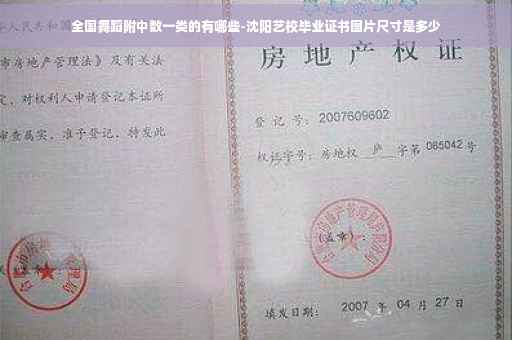 全国舞蹈附中数一类的有哪些-沈阳艺校毕业证书图片尺寸是多少
华人民共和国
市房地产管理法》及有关
定，对权利人申请登记本证所
审查属实，准予登记，特发此
房地产权证
登记号：2007609602
权证字号：房地权 庐 字第 085042 号
(盖章)：
填发日期： 2007 年 04 月 27 日